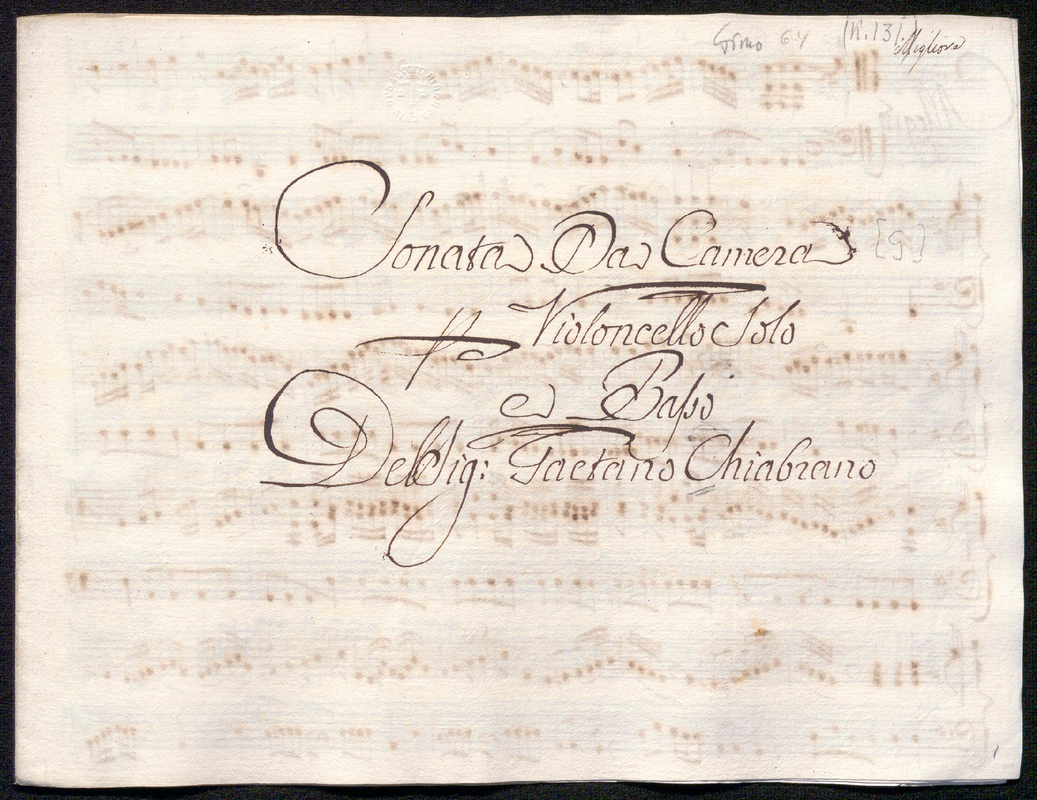 (K. 13)
Migliora
Sonata Da Camera
[9]
Violoncello Solo
e Basso
Del Sig: Gaetano Chiabrano
1